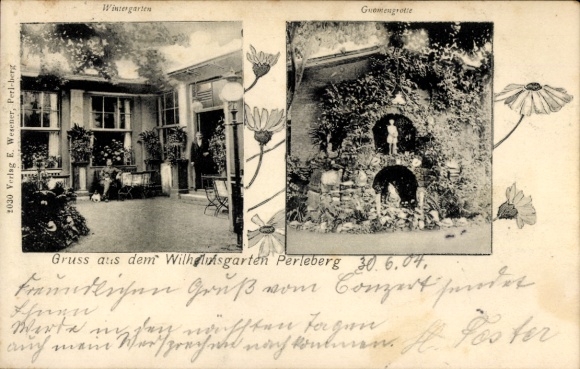 Wintergarten
Gnomengrotte
2030 Verlag E. Wesener, Perleberg
Gruss aus dem Wilhelmsgarten Perleberg
30.6.04.
Freundlichen Gruß vom Conzert sendet
Ihnen
Werde in den nächsten Tagen
auch mein Versprechen nachkommen.